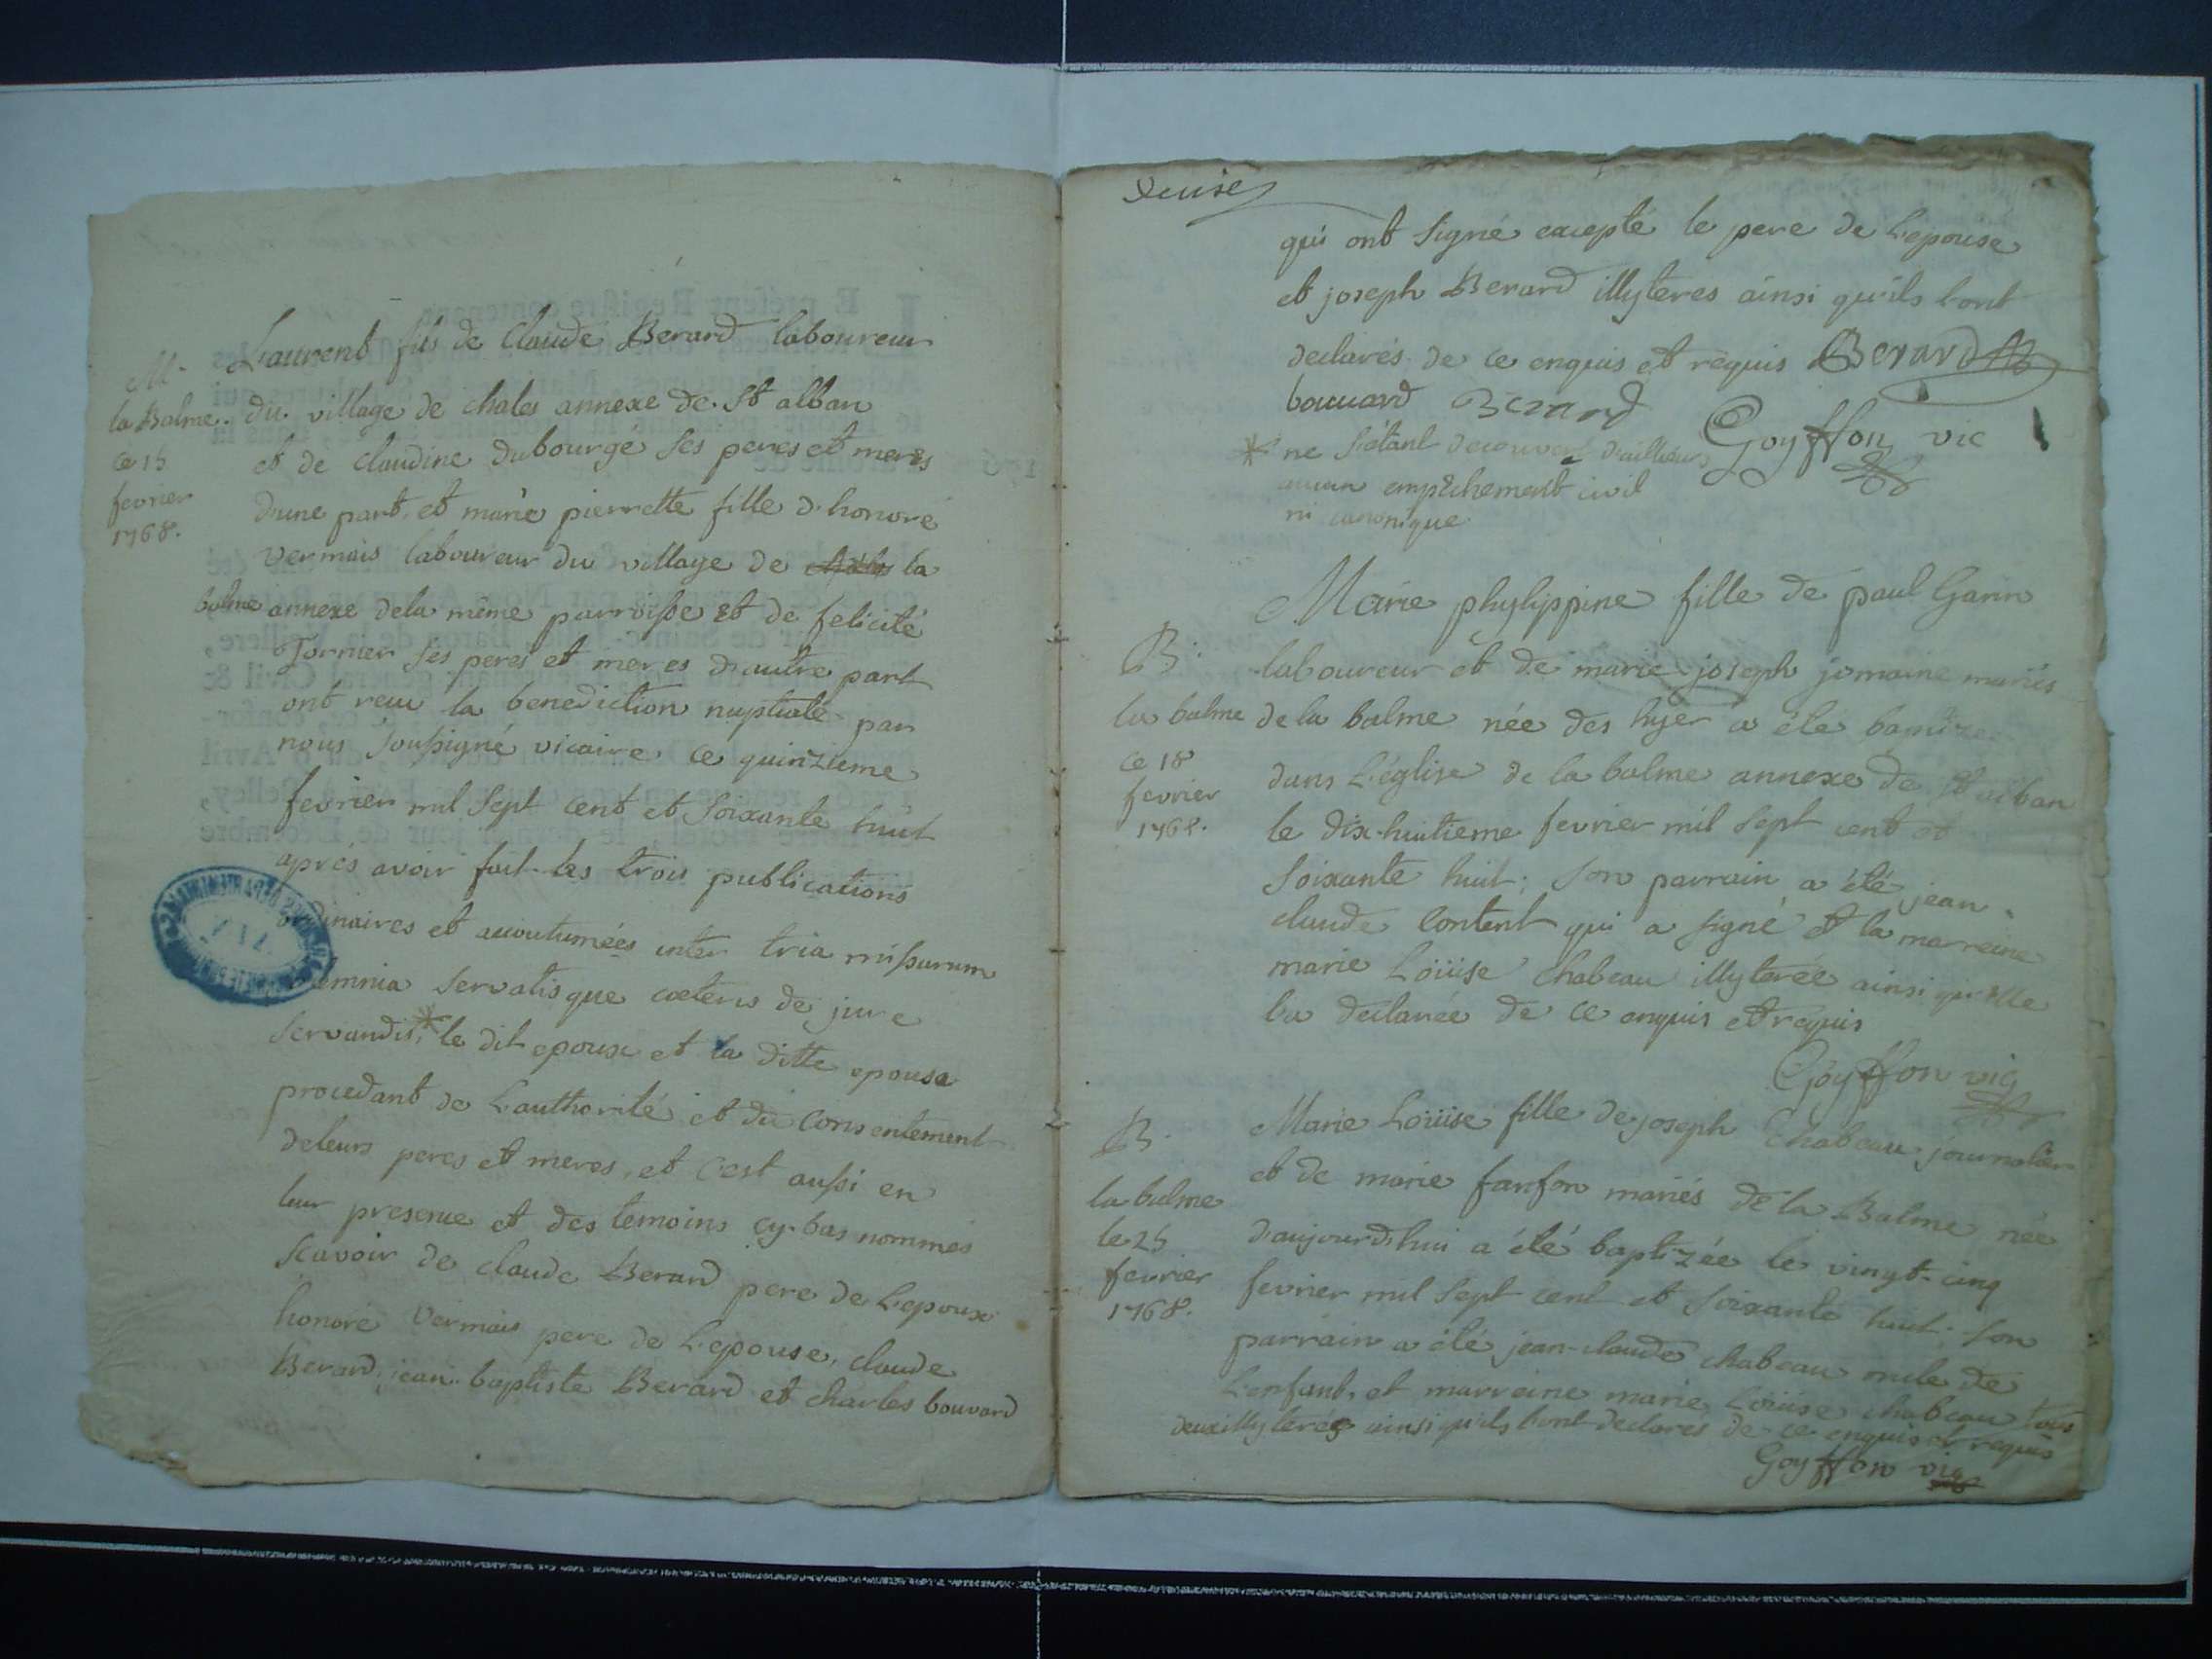 M.
la Balme.
ce 15
fevrier
1768.
Laurent fils de Claude Berard laboureur
du village de chales annexe de St alban
et de claudine dubourgé ses peres et meres
dune part. et marie pierrette fille d'honoré
vermais laboureur du village de la
balme annexe dela même parroisse et de felicité
ses peres et meres d'autre part
ont recu la benediction nuptiale par
nous soussigné vicaire ce quinzieme
fevrier mil sept cent et soixante huit
aprés avoir fait les trois publications
ordinaires et accoutumées inter tria missarum
solemnia servatis que cæteris de jure
servandis,* le dit epoux et la ditte epouse
procedant de l'authorité et du consentement
deleurs peres et meres, et c'est aussi en
leur presence et des temoins cy-bas nommés
scavoir de claude Berard pere de l'epoux
honoré vermais pere de l'epouse, claude
Berard, jean-baptiste Berard et charles bouvard
qui ont signé excepté le pere de l'epouse
et joseph Berard illyteres ainsi qu'ils l'ont
declarés de ce enquis et requis Berard
bouuard Berard Goyffon vic
* ne s'étant decouvert d'ailleurs
aucun empêchement civil
ni canonique
B.
la balme
ce 18
fevrier
1768.
Marie phylippine fille de paul Garin
laboureur et de marie joseph jomaine mariés
de la balme née des hyer a été baptizée
dans l'église de la balme annexe de St alban
le dix-huitieme fevrier mil sept cent et
soixante huit; son parrain a été jean
claude Content qui a signé et la marreine
marie Loüise Chabeau illyterée ainsi qu'elle
la declarée de ce enquis et requis
Goyffon vic
B.
la balme
le 25
fevrier
1768.
Marie Loüise fille de joseph Chabeau journalier
et de marie fanfon mariés de la Balme née
d'aujourd'hui a été baptizée le vingt-cinq
fevrier mil sept cent et soixante huit. son
parrain a été jean-claude chabeau de
l'enfant, et marreine marie Loüise chabeau tous
deux illyteres ainsi qu'ils l'ont declarés de ce enquis et requis
Goyffon vic